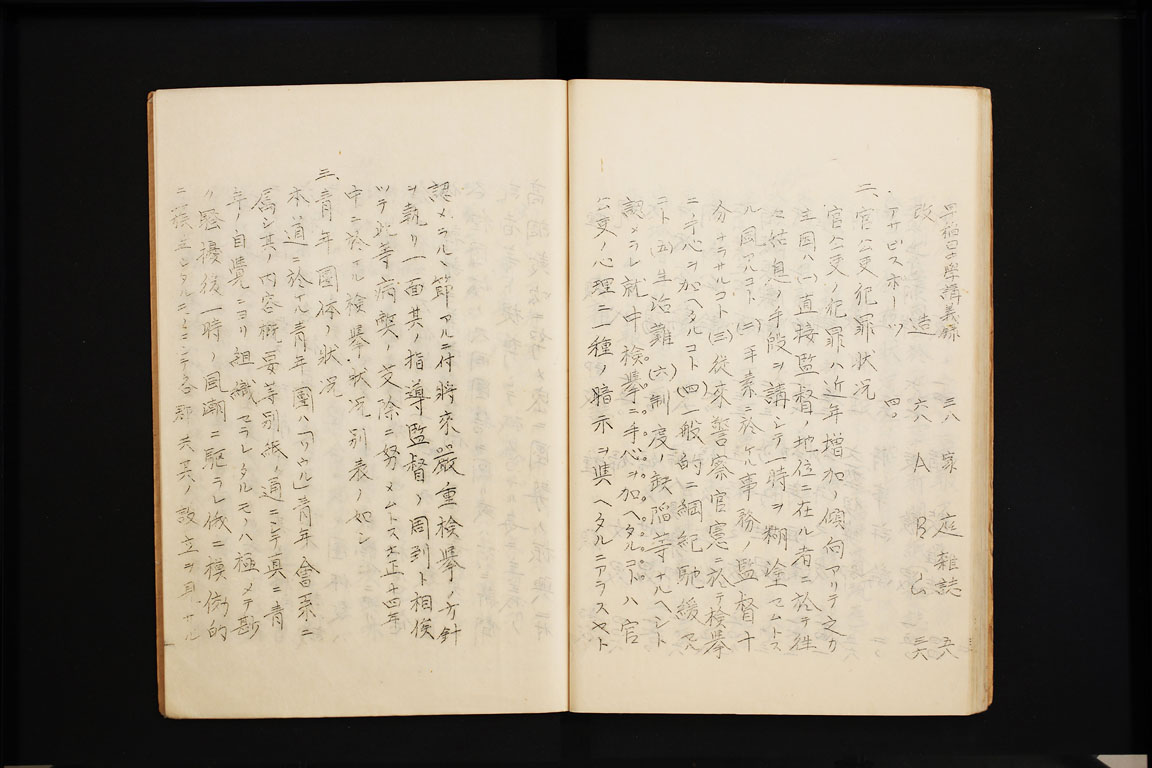 早稲田大學講義録 三八 家庭雑誌 五八
改造 六八 ABC 三六
アサヒスポーツ 四〇
二、官公吏犯罪狀況
官公吏ノ犯罪ハ近年増加ノ傾向アリテ之カ
主因ハ(一)直接監督ノ地位ニ在ル者ニ於テ往
々姑息ノ手段ヲ講シテ一時ヲ糊塗セムトス
ル風アルコト (二)平素ニ於ケル事務ノ監督十
分ナラサルコト(三)從來警察官憲ニ於テ検擧
ニ手心ヲ加ヘタルコト (四)一般的ニ綱紀弛緩セル
コト (五)生活難 (六)制度ノ缺陥等ナルヘシト
認メラレ就中検擧ニ手心ヲ加ヘタルコトハ官
公吏ノ心理ニ一種ノ暗示ヲ與ヘタルニアラスヤト
認メラルヽ節アルニ付將來嚴重検擧ノ方針
ヲ執リ一面其ノ指導監督ノ周到ト相俟
ツテ此等病弊ノ芟除ニ努メムトス大正十四年
中ニ於ケル検擧狀況別表ノ如シ
三、青年團体ノ狀況
本道ニ於ケル青年團ハ「ソウル」青年會系ニ
属シ其ノ内容概要等別紙ノ通ニシテ真ニ青
年ノ自覺ニヨリ組織セラレタルモノハ極メテ尠
ク騒擾後一時ノ風潮ニ駆ラレ徒ニ模倣的
ニ 各郡 其ノ設立ヲ見